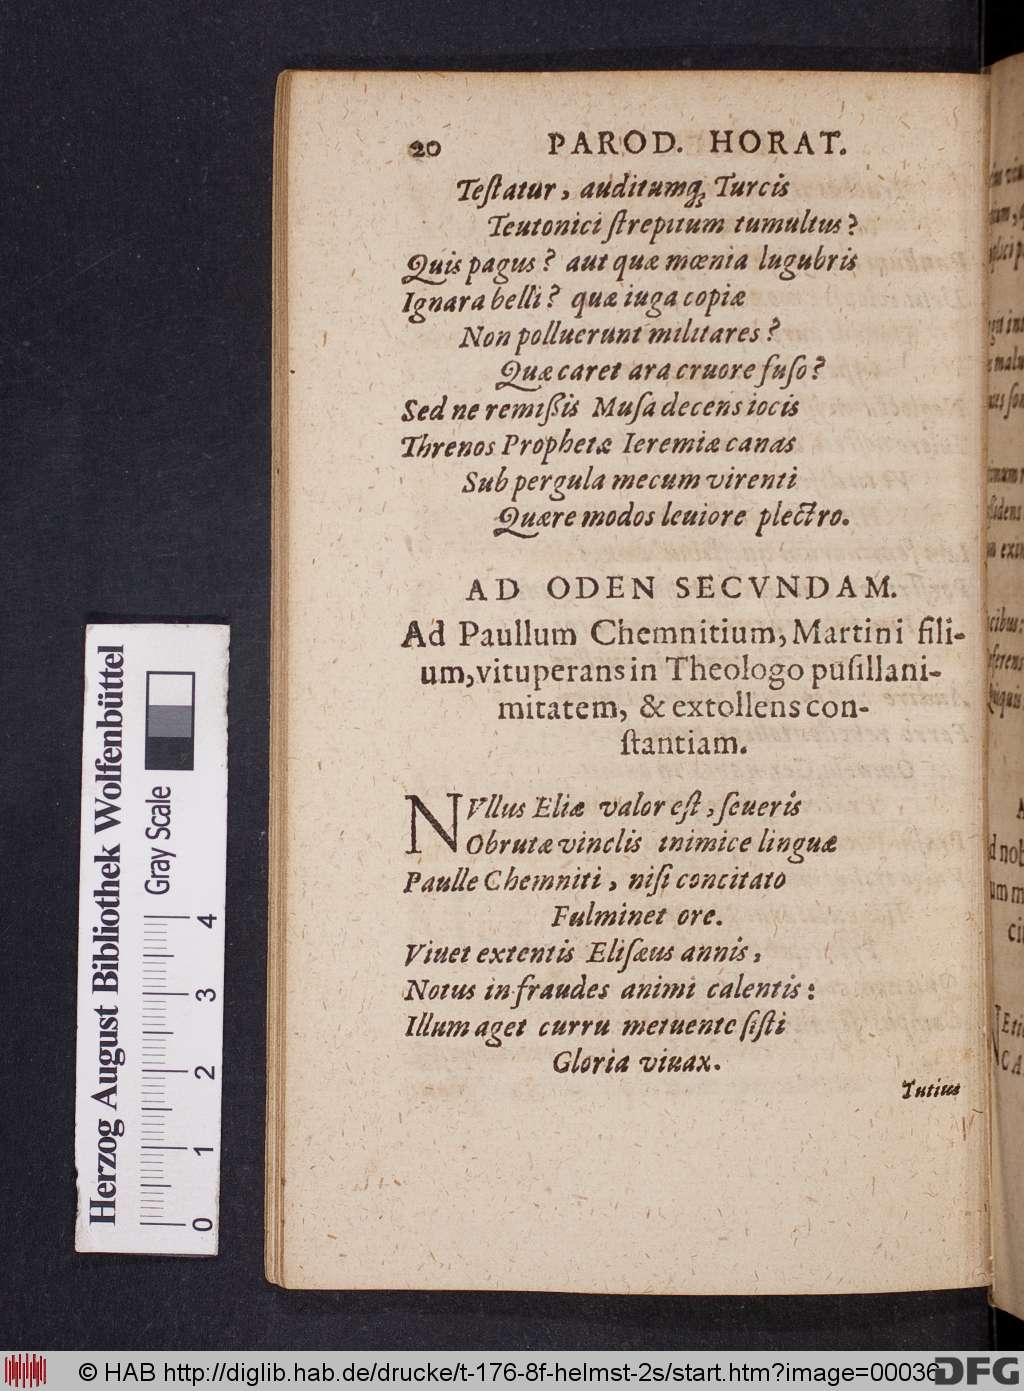 20 PAROD. HORAT.
Teſtatur, auditumq́; Turcis
Teutonici ſtrepitum tumultus?
Quis pagus? aut quæ mœnia lugubris
Ignara belli? quæ iuga copiæ
Non polluerunt militares?
Quæ caret ara cruore fuſo?
Sed ne remißis Muſa decens iocis
Threnos Prophetæ Ieremiæ canas
Sub pergula mecum virenti
Quære modos leuiore plectro.
AD ODEN SECVNDAM.
Ad Paullum Chemnitium, Martini fili-
um, vituperans in Theologo puſillani-
mitatem, & extollens con-
ſtantiam.
NVllus Eliæ valor eſt, ſeueris
Obrutæ vinclis inimice linguæ
Paulle Chemniti, niſi concitato
Fulminet ore.
Viuet extentis Eliſæus annis,
Notus in fraudes animi calentis:
Illum aget curru metuente ſiſti
Gloria viuax.
Tutius
Herzog August Bibliothek Wolfenbüttel
Gray Scale
0 1 2 3 4
© HAB http://diglib.hab.de/drucke/t-176-8f-helmst-2s/start.htm?image=00036
DFG